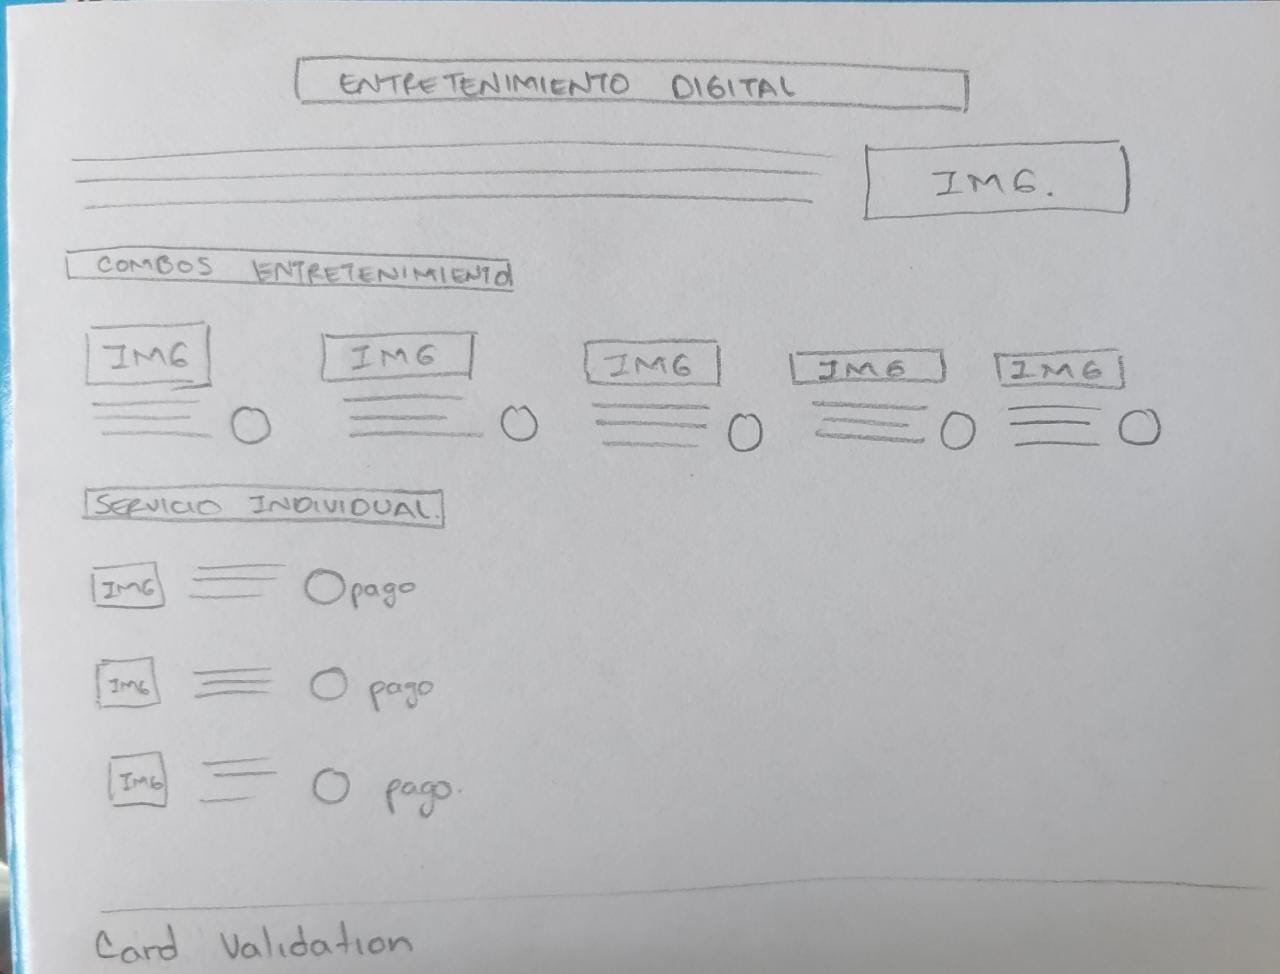 ENTRETENIMIENTO DIGITAL
IMG.
COMBOS ENTRETENIMIENTO
IMG IMG IMG IMG IMG
SERVICIO INDIVIDUAL.
IMG pago
IMG pago
IMG pago.
Card Validation